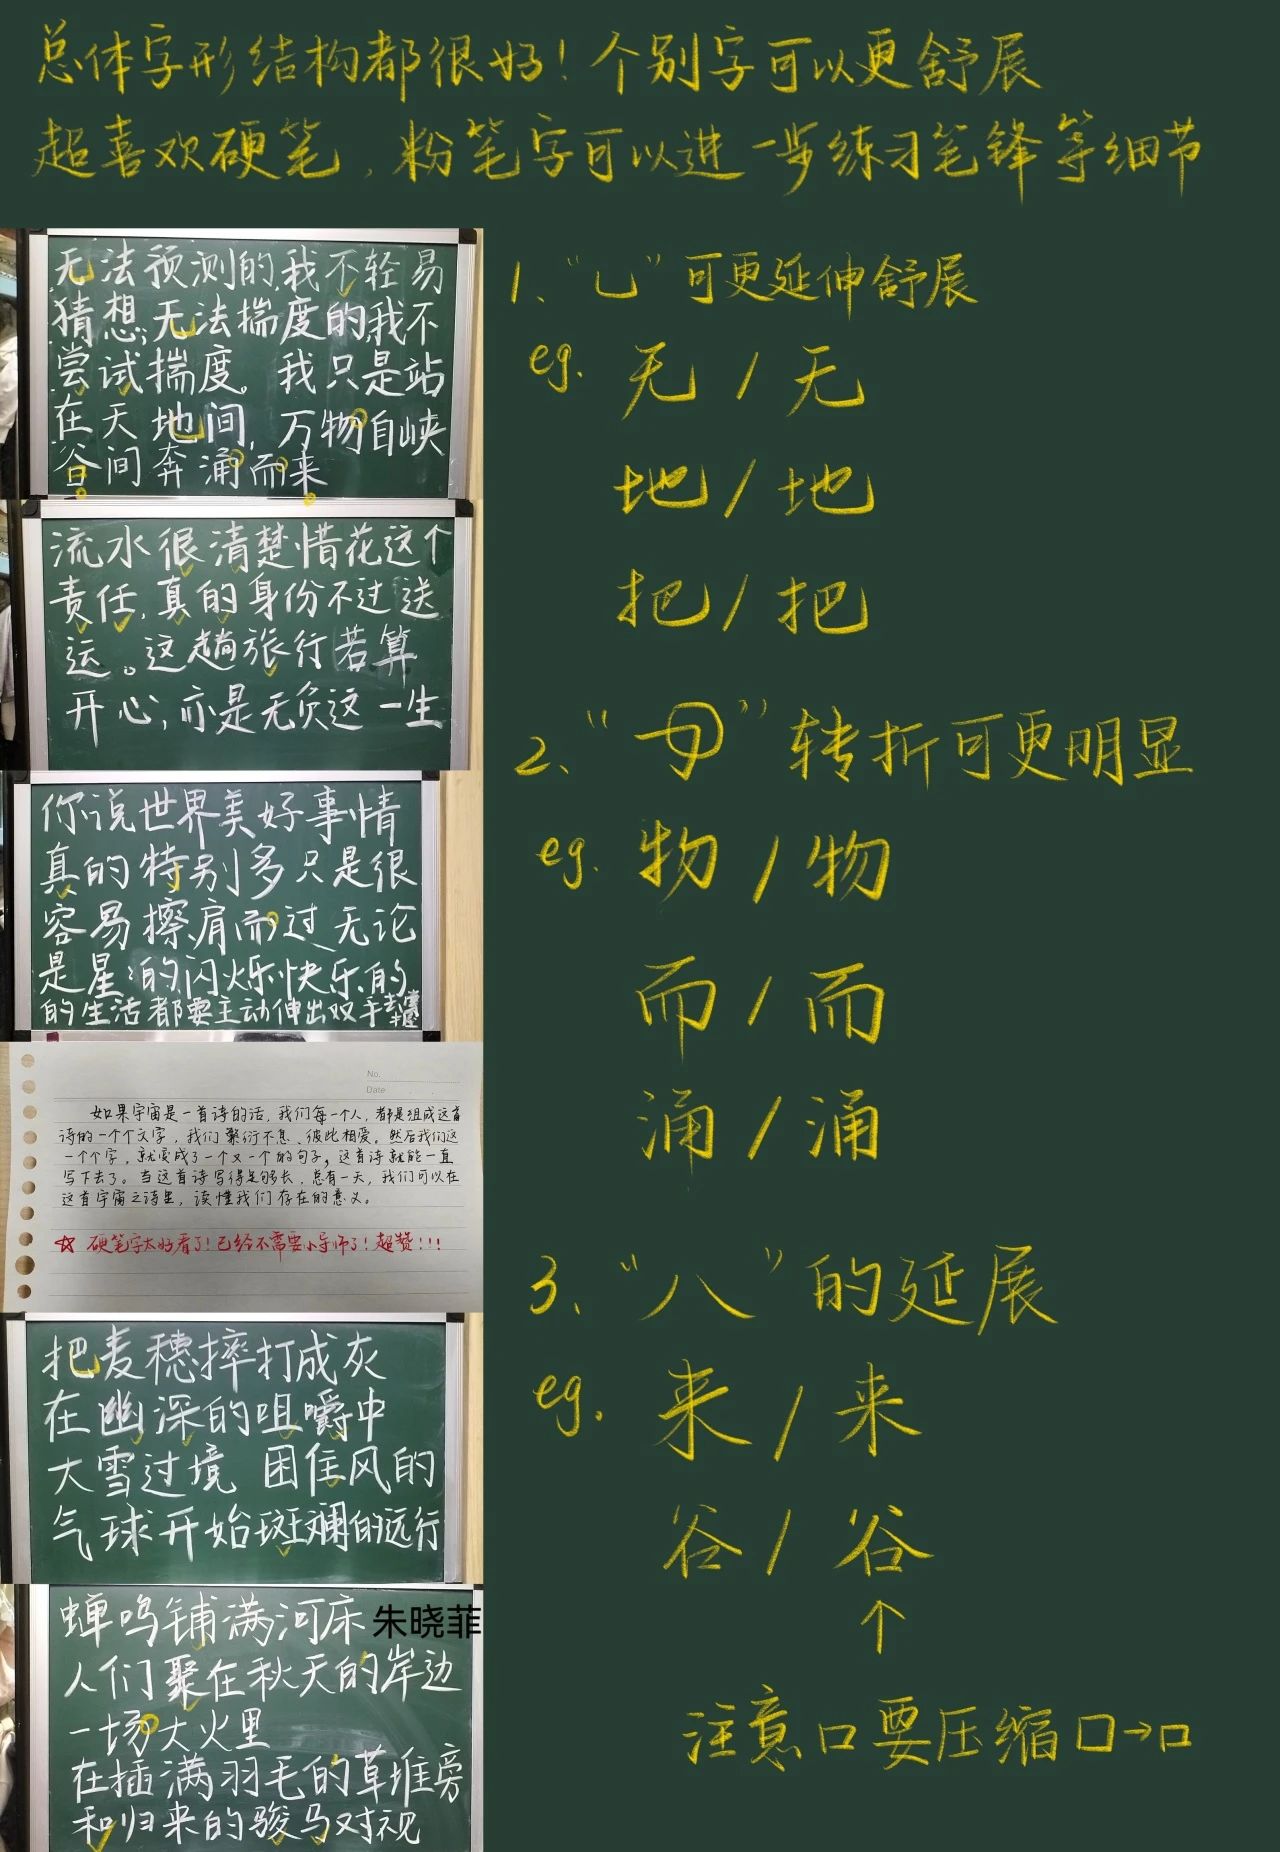 总体字形结构都很好！个别字可以更舒展
超喜欢硬笔，粉笔字可以进一步练习笔锋等细节
无法预测的,我不轻易
猜想,无法揣度的,我不
尝试揣度。我只是站
在天地间,万物自峡
谷间奔涌而来
流水很清楚惜花这个
责任,真的身份不过送
运。这趟旅行若算
开心,亦是无负这一生
你说世界美好事情
真的特别多只是很
容易擦肩而过无论
是星的闪烁快乐的
的生活都要主动伸出双手去掌握
No.
Date
如果宇宙是一首诗的话，我们每一个人，都是组成这首
诗的一个个文字，我们繁衍不息、彼此相爱。然后我们这
一个个字，就变成了一个又一个的句子，这首诗就能一直
写下去了。当这首诗写得足够长，总有一天，我们可以在
这首宇宙之诗里，读懂我们存在的意义。
☆ 硬笔字太好看了！已经不需要小导师了！超赞！！！
把麦穗摔打成灰
在幽深的咀嚼中
大雪过境 困住风的
气球开始斑斓的远行
蝉鸣铺满河床
朱晓菲
人们聚在秋天的岸边
一场大火里
在插满羽毛的草堆旁
和归来的骏马对视
1、“乚”可更延伸舒展
eg. 无/无
地/地
把/把
2、“𠃌”转折可更明显
eg. 物/物
而/而
涌/涌
3、“八”的延展
eg. 来/来
谷/谷
↑
注意口要压缩 口→口